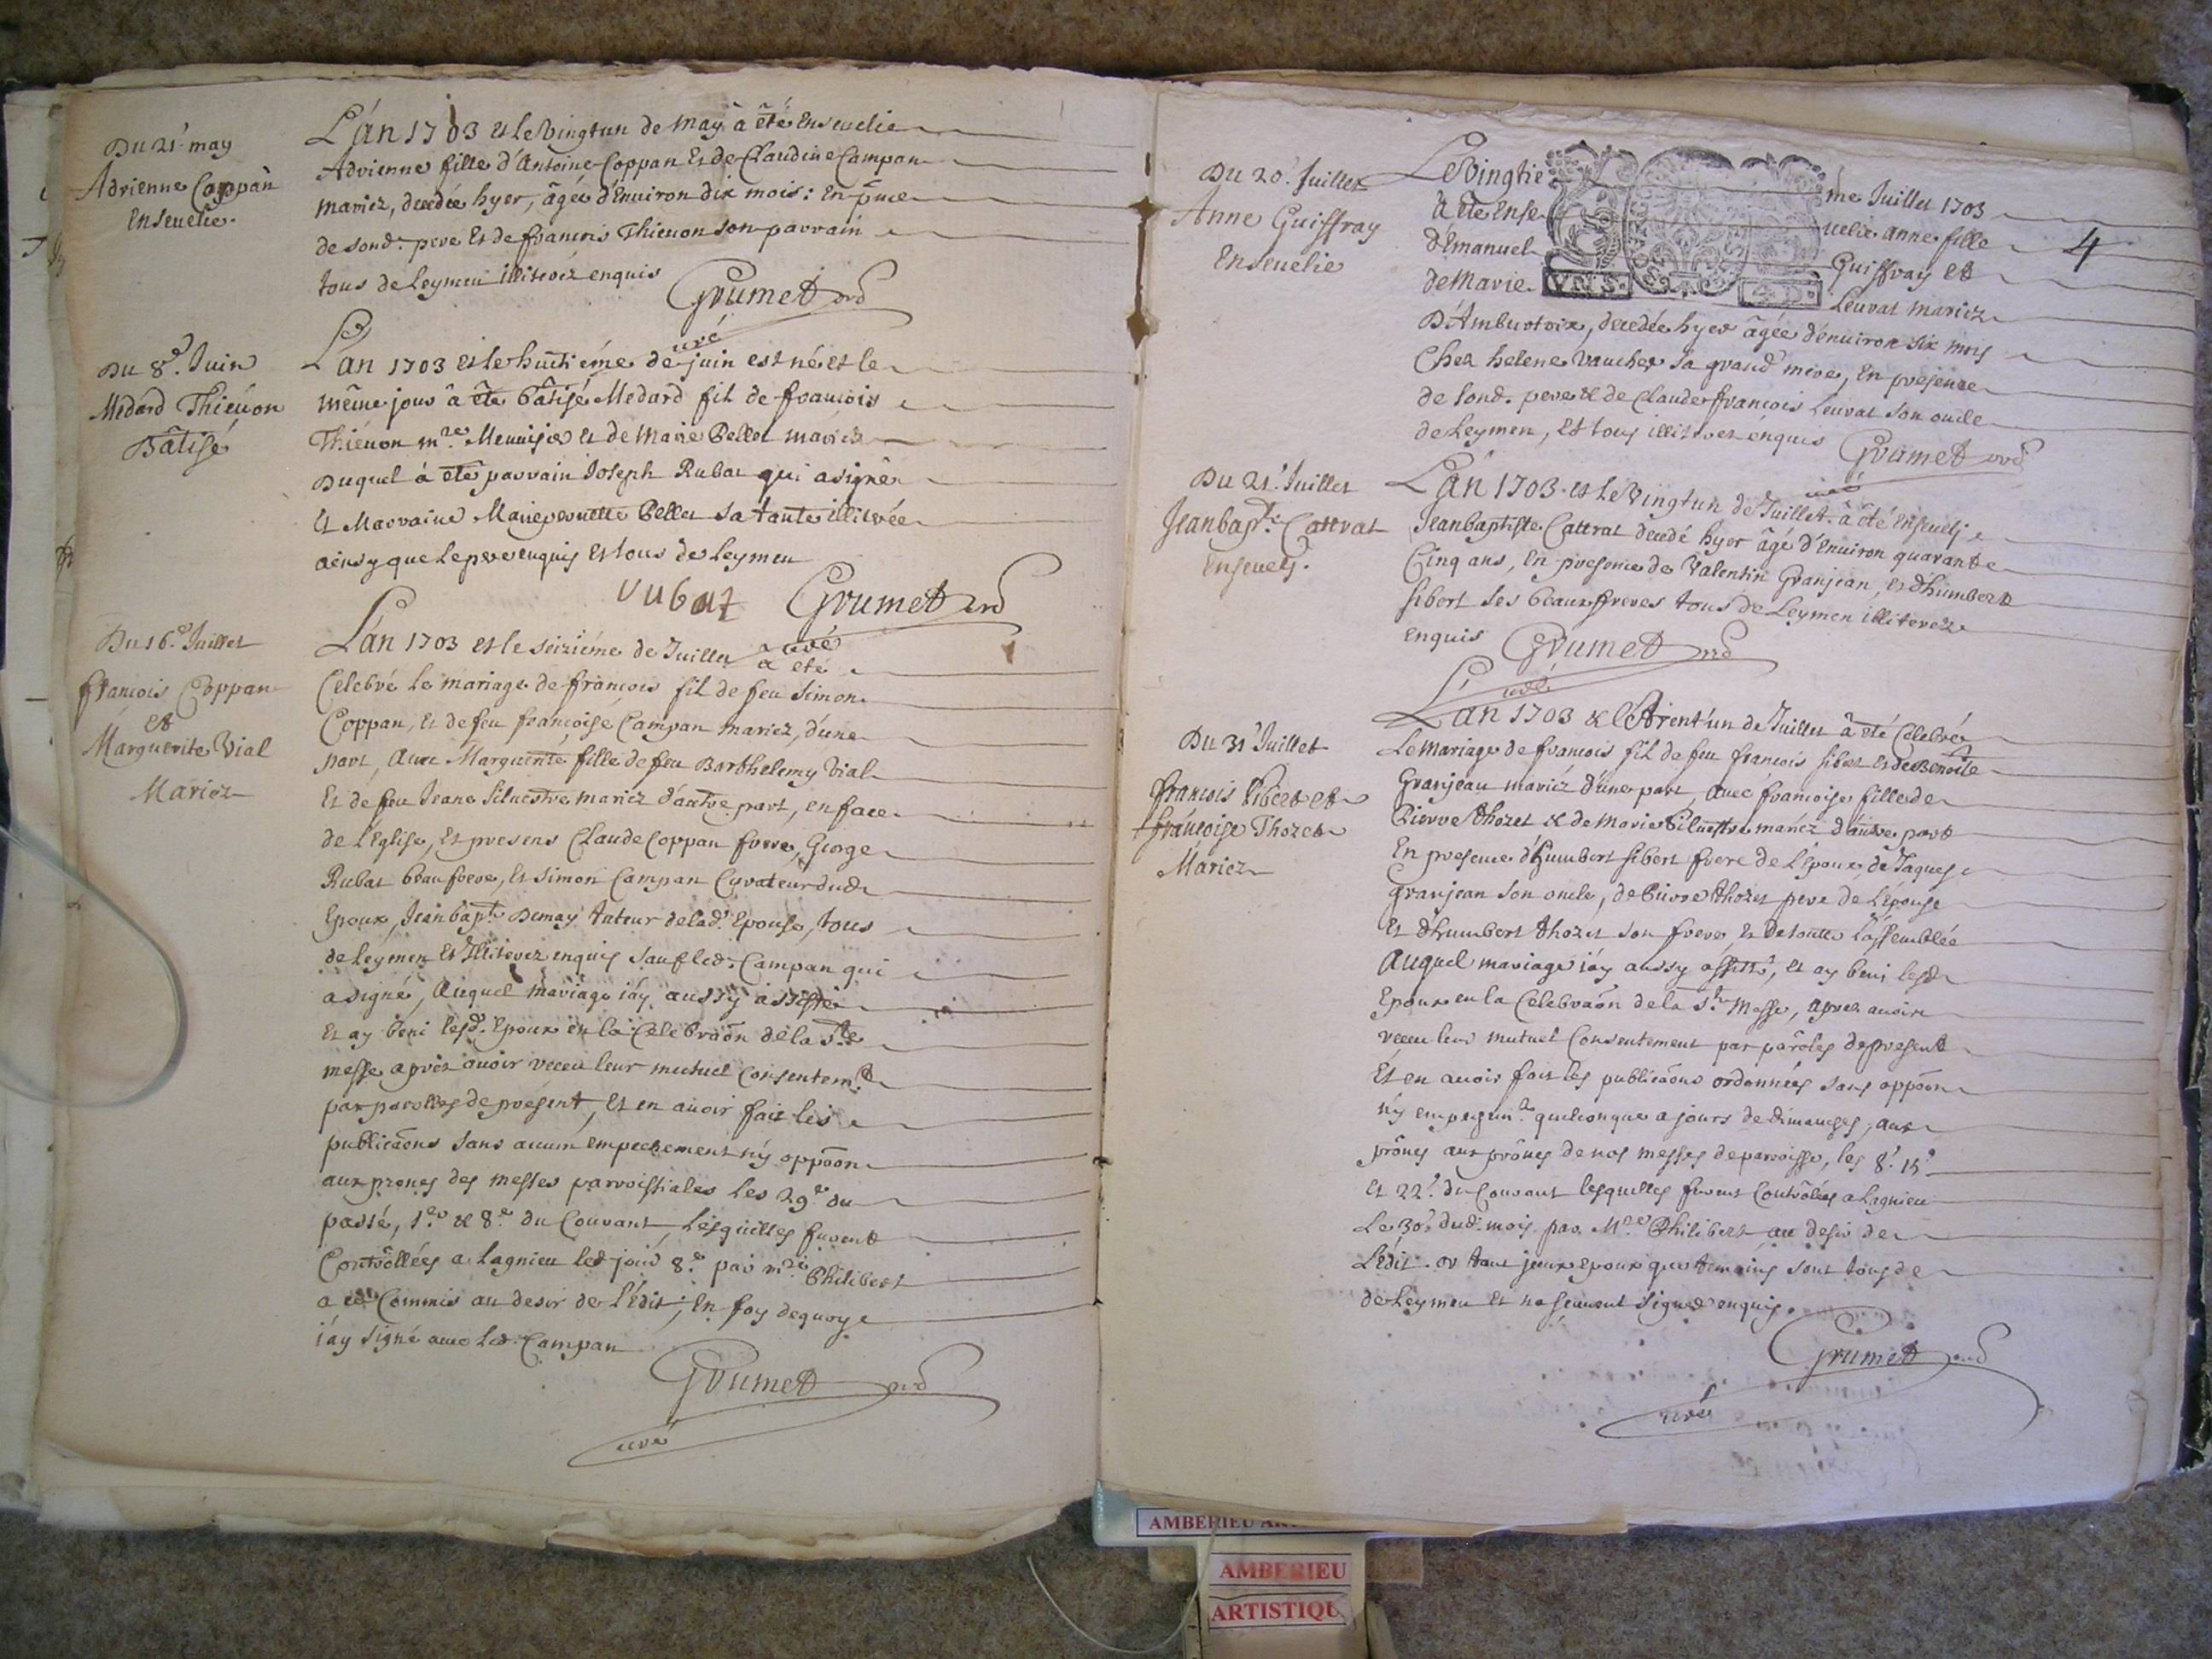 Du 21.e may
Adrienne Coppan
Enseuelie.
L'án 1703 et le Vingtun de may à êté Enseuelie
Adrienne fille d'Antoine Coppan Et de Claudine Campan
mariez, decedée hyer, âgée d'Enuiron dix mois: En pñce
de sond. pere Et de francois Thieuon son parrain
tous de Leymen illiterez enquis
Grumet
curé
Du 8.e Juin
Medard Thieuon
Bâtisé
L'an 1703 et le huitiéme de juin est né et le
même jour à êté bâtisé Medard fil de francois
Thiéuon m.re Meunisier et de Marie Bellet mariez
Duquel à êté parrain Joseph Rubat qui a signé
Et Marraine Marie pernette Bellet sa tante illitrée
ainsy que le pere enquis Et tous de Leymen
rubat Grumet
curé
Du 16.e Juillet
francois Coppan
et
Marguerite Vial
Mariez
L'án 1703 et le seiziéme de Juillet à eté
Celebré le mariage de francois fil de feu Simon
Coppan, Et de feu francoise Campan mariez, d'une
part, Auec Marguerite fille de feu Barthelemy Vial
Et de feu Jeane Siluestre mariez d'autre part, en face
de l'Eglise, Et presens Claude Coppan frere, George
Rubat beaufrere, Et Simon Campan Curateur dud.
Epoux, Jeanbap.te Demay tuteur de lad. Epouse, tous
de Leymen Et Illiterez enquis sauf led. Campan qui
a signé, Auquel mariage i'ay aussy assisté
Et ay beni lesd. Epoux en la Celebraõn de la s.te
messe aprés auoir receu leur mutuel Consentem.t
par parolles de présent, Et en auoir fait les
publicaõns sans aucun empechement ny oppõon
aux prones des messes parroissiales les 29.e du
passé, 1.er & 8.e du Courant, Lesquelles furent
Contrôllées a Lagnieu led jour 8.e par m.re Philibert
a ce Commis au desir de l'Edit; En foy dequoy
i'ay signé auec led. Campan
Grumet
curé
4
Du 20.e Juillet
Anne Guiffray
Enseuelie
Le Vingtie me Juillet 1703
à êté Ense uelie anne fille
d'Emanuel Guiffray et
de Marie Leurat mariez
VN S. 4 D.
D'Ambutrix, decedée hyer âgée d'enuiron six mois
Chez helene Vaucher sa grand' mere, En presence
de sond. pere & de Claude francois Leurat son oncle
de Leymen, Et tous illiterez enquis Grumet
curé
Du 21.e Juillet
Jeanbap.te Catterat
enseuely.
L'án 1703 et le Vingtun de Juillet à êté enseuely
Jeanbaptiste Catterat decedé hyer âgé d'Enuiron quarante
Cinq ans, En presence de Valentin Granjean, et d'humbert
sibert ses beaux freres tous de Leymen illiterez
enquis Grumet
curé
Du 31.e Juillet
francois sibert et
francoise Thozet
Mariez
L'an 1703 & le trent'un de Juillet à êté Celebré
Le mariage de francois fil de feu francois sibert et de Benoite
Granjean mariéz d'une part, Auec francoise fille de
Pierre thozet & de Marie Siluestre mariez d'autre part
En presence d'humbert sibert frere de l'époux, de Jaques
Granjean son oncle, de Pierre thozet pere de l'épouse
Et d'humbert thozet son frere, Et de toutte l'assemblée
Auquel mariage i'áy aussy assisté, Et ay beni lesd.
Epoux en la Celebraõn de la s.te Messe, Aprez auoir
receu leur mutuel Consentement par pâroles de present
Et en auoir fait les publicaõns ordonnées sans oppõon
ny empechem.t quelconque a jours de dimanches, aux
prônes aux prônes de nos messes de parroisse, les 8.e 15.e
Et 22.e du Courant lesquelles furent Contrôlées a Lagnieu
Le 30.e dud. mois par M.re Philibert au desir de
L'edit. or tant jceux epoux que temoins sont tous de
de Leymen Et ne sceuent signer enquis.
Grumet
curé
AMBERIEU
AMBERIEU
ARTISTIQU